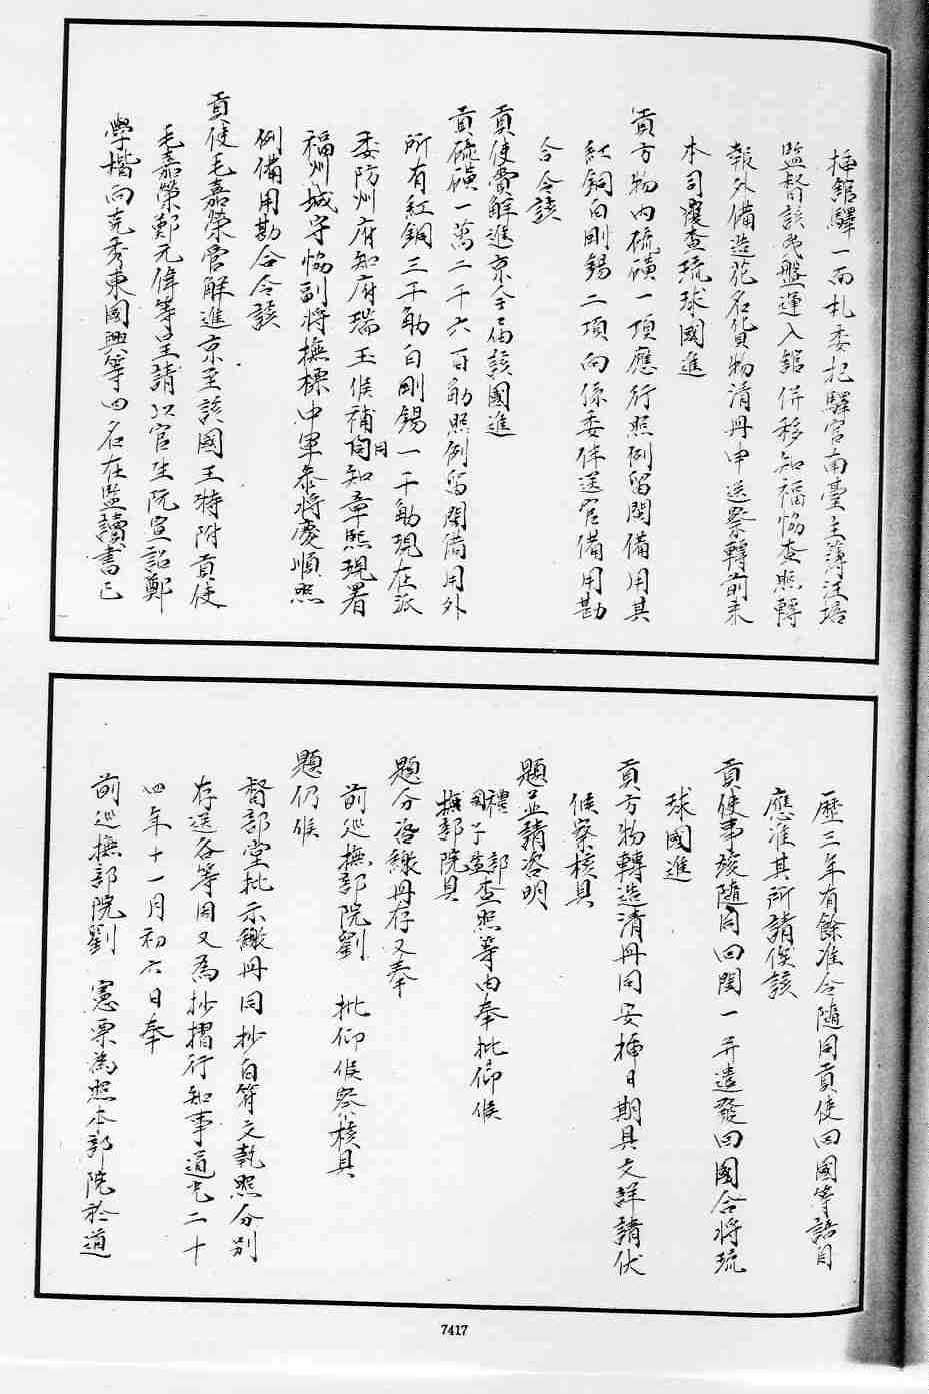 插館驛一面札委柁驛官南臺主簿汪培
監督該민盤運入館併移知福協查照轉
報外備造花名貨物清冊申送察轉前来
本司覆查琉球國進
貢方物内硫磺一項應行照例留閩備用其
紅銅白剛錫二項向係委伴送官備用勘
合令該
貢使賫觧進京今届該國進
貢硫磺一萬二千六百觔照例留閩備用外
所有紅銅三千觔白剛錫一千觔現在派
委防州府知府瑞玉候補同知章熙現署
福州城守協副将撫標中軍叅将慶順照
例備用勘合令該
貢使毛嘉榮管觧進京至該國王特附貢使
毛嘉榮鄭元偉等呈請以官生阮宣詔鄭
學楷向克秀東國興等四名在監讀書已
歷三年有餘准令隨同貢使回國等語自
應准其所請俟該
貢使事竣隨同回閩一并遣發回國合将琉
球國進
貢方物轉造清冊同安揷日期具文詳請伏
候察核具
題並請咨明
禮部
國子監查照等由奉批仰候
撫部院具
題分咨繳冊存又奉
前巡撫部院劉 批仰候察核具
題仍候
督部堂批示繳冊同抄白符文執照分别
存送各等因又為抄摺行知事道光二十
四年十一月初六日奉
前巡撫部院劉 憲票為照本部院於道
7417